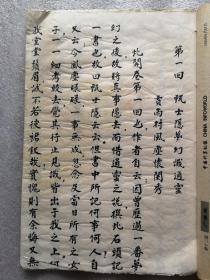 第一回　甄士隱夢幻識通靈
賈雨村風塵懷閨秀
此開卷第一回也作者自云因曾歷過一番夢
幻之後故將真事隱去而借通靈之說撰此石頭記
一書也故曰甄士隱云云但書中所記何事何人自
又云今風塵碌碌一事無成忽念及當日所有之女
子一一細考較去覺其行止見識皆出于我之上何
我堂堂鬚眉誠不若彼裙釵哉實愧則有餘悔又無